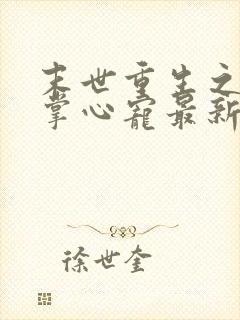 末世重生之
掌心宠最新
徐世奎